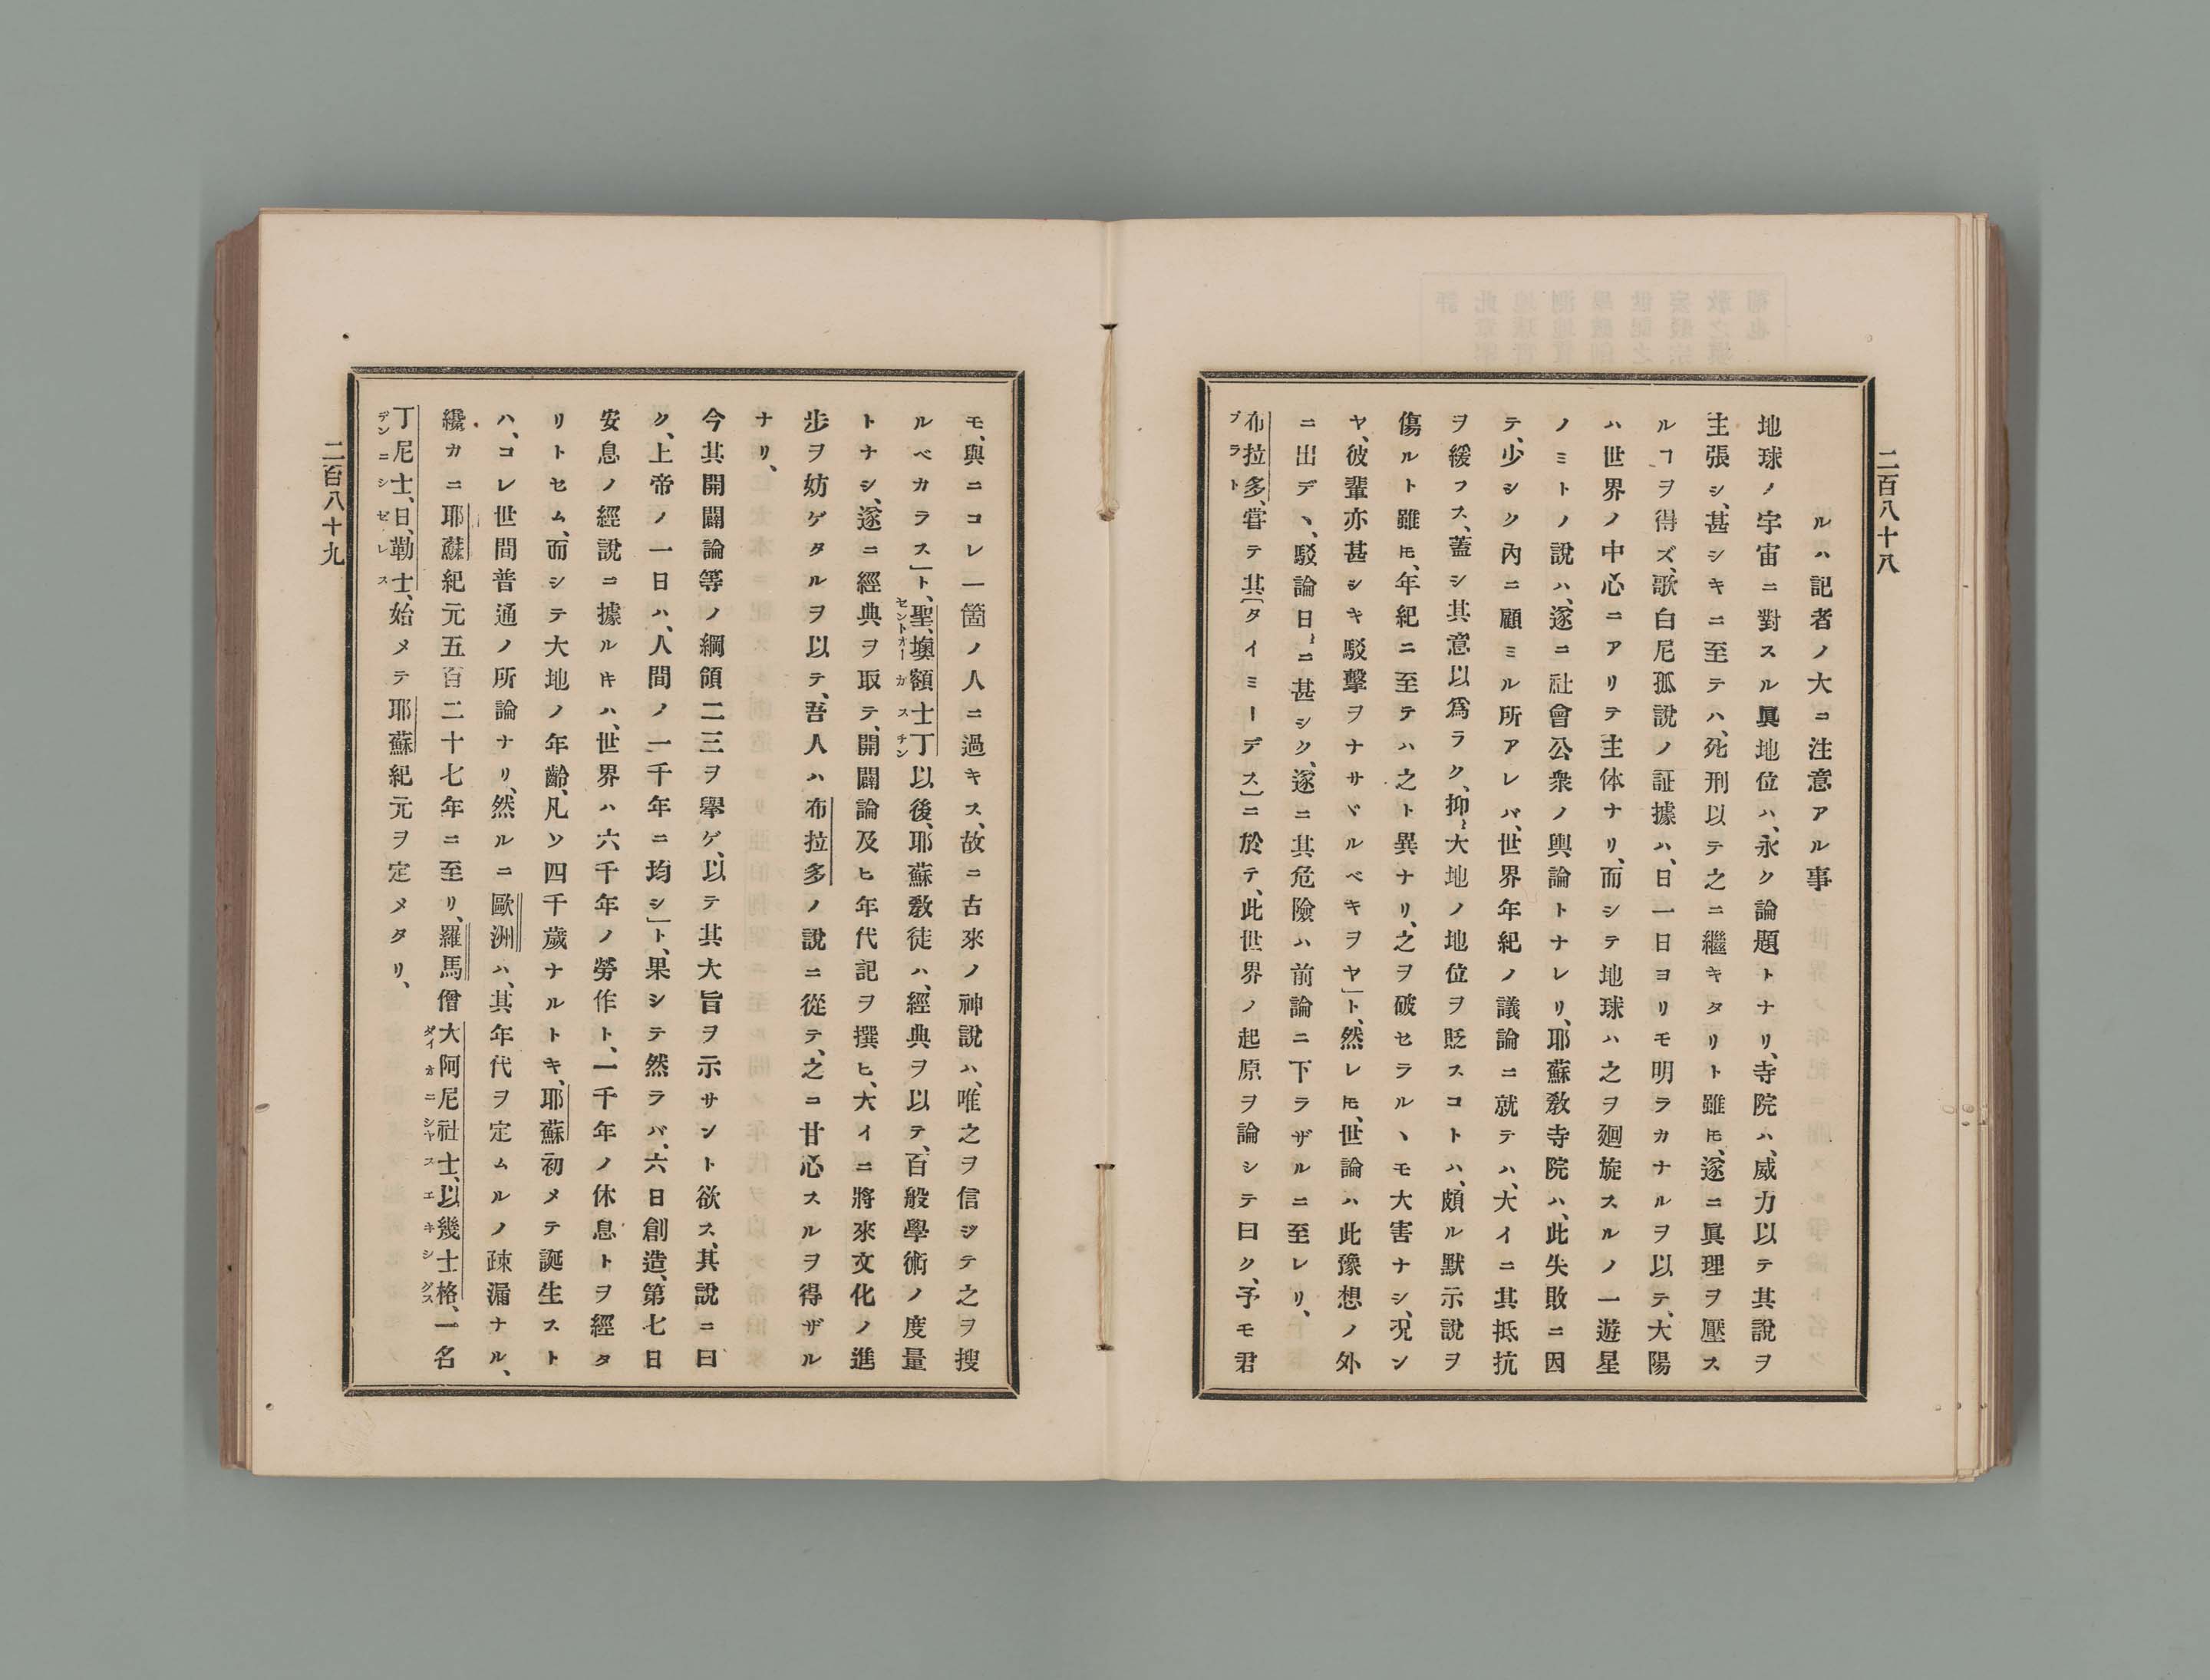 二百八十八
ルハ記者ノ大ニ注意アル事
地球ノ宇宙ニ對スル眞地位ハ、永ク論題トナリ、寺院ハ、威力以テ其說ヲ
主張シ、甚シキニ至テハ、死刑以テ之ニ繼キタリト雖𪜈、遂ニ眞理ヲ壓ス
ルヿヲ得ズ、歌白尼孤說ノ証據ハ、日一日ヨリモ明ラカナルヲ以テ、大陽
ハ世界ノ中心ニアリテ主体ナリ、而シテ地球ハ之ヲ廻旋スルノ一遊星
ノミトノ說ハ、遂ニ社會公衆ノ輿論トナレリ、耶蘇敎寺院ハ、此失敗ニ因
テ、少シク內ニ顧ミル所アレバ、世界年紀ノ議論ニ就テハ、大イニ其抵抗
ヲ緩フス、蓋シ其意以爲ラク、抑〻大地ノ地位ヲ貶スコトハ、頗ル默示說ヲ
傷ルト雖𪜈、年紀ニ至テハ之ト異ナリ、之ヲ破セラルヽモ大害ナシ、况ン
ヤ、彼輩亦甚シキ駁擊ヲナサヾルベキヲヤ」ト、然レ𪜈、世論ハ此豫想ノ外
ニ出デヽ、駁論日〻ニ甚シク、遂ニ其危險ハ前論ニ下ラザルニ至レリ、
布拉多、嘗テ其「タイミーデス」ニ於テ、此世界ノ起原ヲ論シテ曰ク、予モ君
プラト
モ、與ニコレ一箇ノ人ニ過キス、故ニ古來ノ神說ハ、唯之ヲ信ジテ之ヲ搜
ルベカラス」ト、聖、墺額士丁以後、耶蘇敎徒ハ、經典ヲ以テ、百般學術ノ度量
セントオーガスチン
トナシ、遂ニ經典ヲ取テ、開闢論及ヒ年代記ヲ撰ヒ、大イニ將來文化ノ進
步ヲ妨ゲタルヲ以テ、吾人ハ布拉多ノ說ニ從テ、之ニ甘心スルヲ得ザル
ナリ、
今其開闢論等ノ綱領二三ヲ擧ゲ、以テ其大旨ヲ示サント欲ス、其說ニ曰
ク、上帝ノ一日ハ、人間ノ一千年ニ均シ」ト、果シテ然ラバ、六日創造、第七日
安息ノ經說ニ據ルキハ、世界ハ六千年ノ勞作ト、一千年ノ休息トヲ經タ
リトセム、而シテ大地ノ年齡、凡ソ四千歲ナルトキ、耶蘇初メテ誕生スト
ハ、コレ世間普通ノ所論ナリ、然ルニ歐洲ハ、其年代ヲ定ムルノ疎漏ナル、
纔カニ耶蘇紀元五百二十七年ニ至リ、羅馬僧大阿尼社士、以幾士格、一名
ダイオニシヤスエキシグス
丁尼士、日、勒士、始メテ耶蘇紀元ヲ定メタリ、
デンニシゼレス
二百八十九